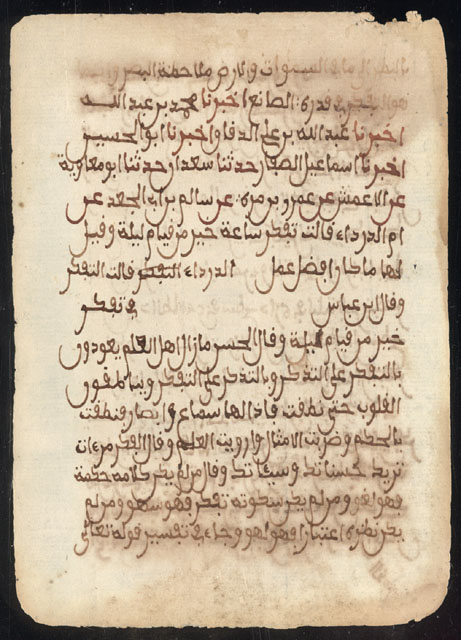 السموات والارض ملاحظة البصر
في قدرة الصانع اخبرنا محمد بن عبد الله
اخبرنا عبد الله بن علي الدقاق اخبرنا ابو الحسين
اخبرنا اسماعيل الصفار حدثنا سعدان حدثنا ابو معاوية
عن الاعمش عن عمرو بن مرة عن سالم بن ابي الجعد عن
ام الدرداء قالت تفكر ساعة خير من قيام ليلة وقيل
لها ما كان افضل عمل الدرداء التفكر قالت التفكر
وقال ابن عباس في تفكر
خير من قيام ليلة وقال الحسن ما زال اهل العلم يعودون
بالتفكر على التذكر وبالتذكر على التفكر ويناطقون
القلوب حتى نطقت فاذا لها سماع وابصار فنطقت
بالحكم وضربت الامثال واورثت العلم وقال الفكر مرءات
تريك حسناتك وسيئاتك وقال من لم يكن كلامه حكمة
فهو لغو ومن لم يكن سكوته تفكر فهو سهو ومن لم
يكن نظره اعتبارا فهو لهو وجاء في تفسير قوله تعالى